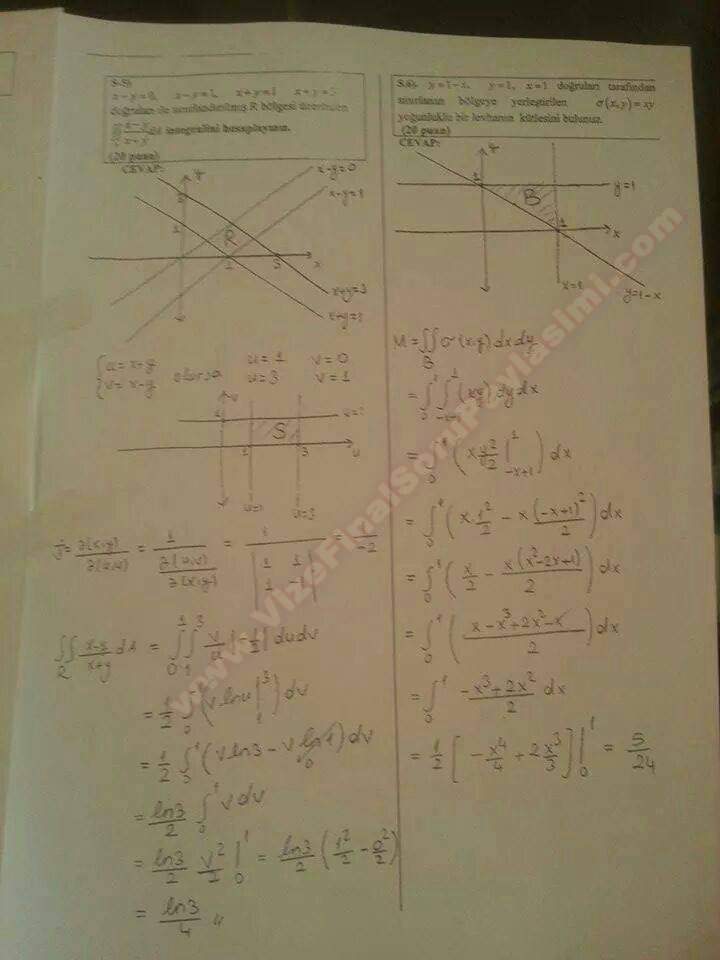 S-5)
x-y=0, x-y=1, x+y=1 x+y=3
doğruları ile sınırlandırılmış R bölgesi üzerinden
∬ x-y/x+y dA integralini hesaplayınız.
(20 puan)
CEVAP:
y
x-y=0
x-y=1
R
1
3
x
x+y=3
x+y=1
{u=x+y
v=x-y olursa u=1 v=0
u=3 v=1
v
S
1
3
u
u=1
u=3
J = ∂(x,y)/∂(u,v) = 1/(∂(u,v)/∂(x,y)) = 1/|1 1 1 -1| = 1/-2
∬R x-y/x+y dA = ∫0^1 ∫1^3 v/u |-1/2| du dv
= 1/2 ∫0^1 (v ln u |1^3) dv
= 1/2 ∫0^1 (v ln3 - v ln1) dv
0
= ln3/2 ∫0^1 v dv
= ln3/2 v^2/2 |0^1 = ln3/2 (1^2/2 - 0^2/2)
= ln3/4 //
S.6). y=1-x, y=1, x=1 doğruları tarafından
sınırlanan bölgeye yerleştirilen σ(x,y)=xy
yoğunluklu bir levhanın kütlesini bulunuz.
(20 puan)
CEVAP:
y
1
B
y=1
1
x
x=1
y=1-x
M = ∬B σ(x,y) dx dy
= ∫0^1 ∫-x+1^1 (xy) dy dx
= ∫0^1 (x y^2/2 |-x+1^1) dx
= ∫0^1 (x.1^2/2 - x(-x+1)^2/2) dx
= ∫0^1 (x/2 - x(x^2-2x+1)/2) dx
= ∫0^1 (x-x^3+2x^2-x/2) dx
= ∫0^1 -x^3+2x^2/2 dx
= 1/2 [-x^4/4 + 2x^3/3] |0^1 = 5/24
www.VizeFinalSoruPaylasimi.com